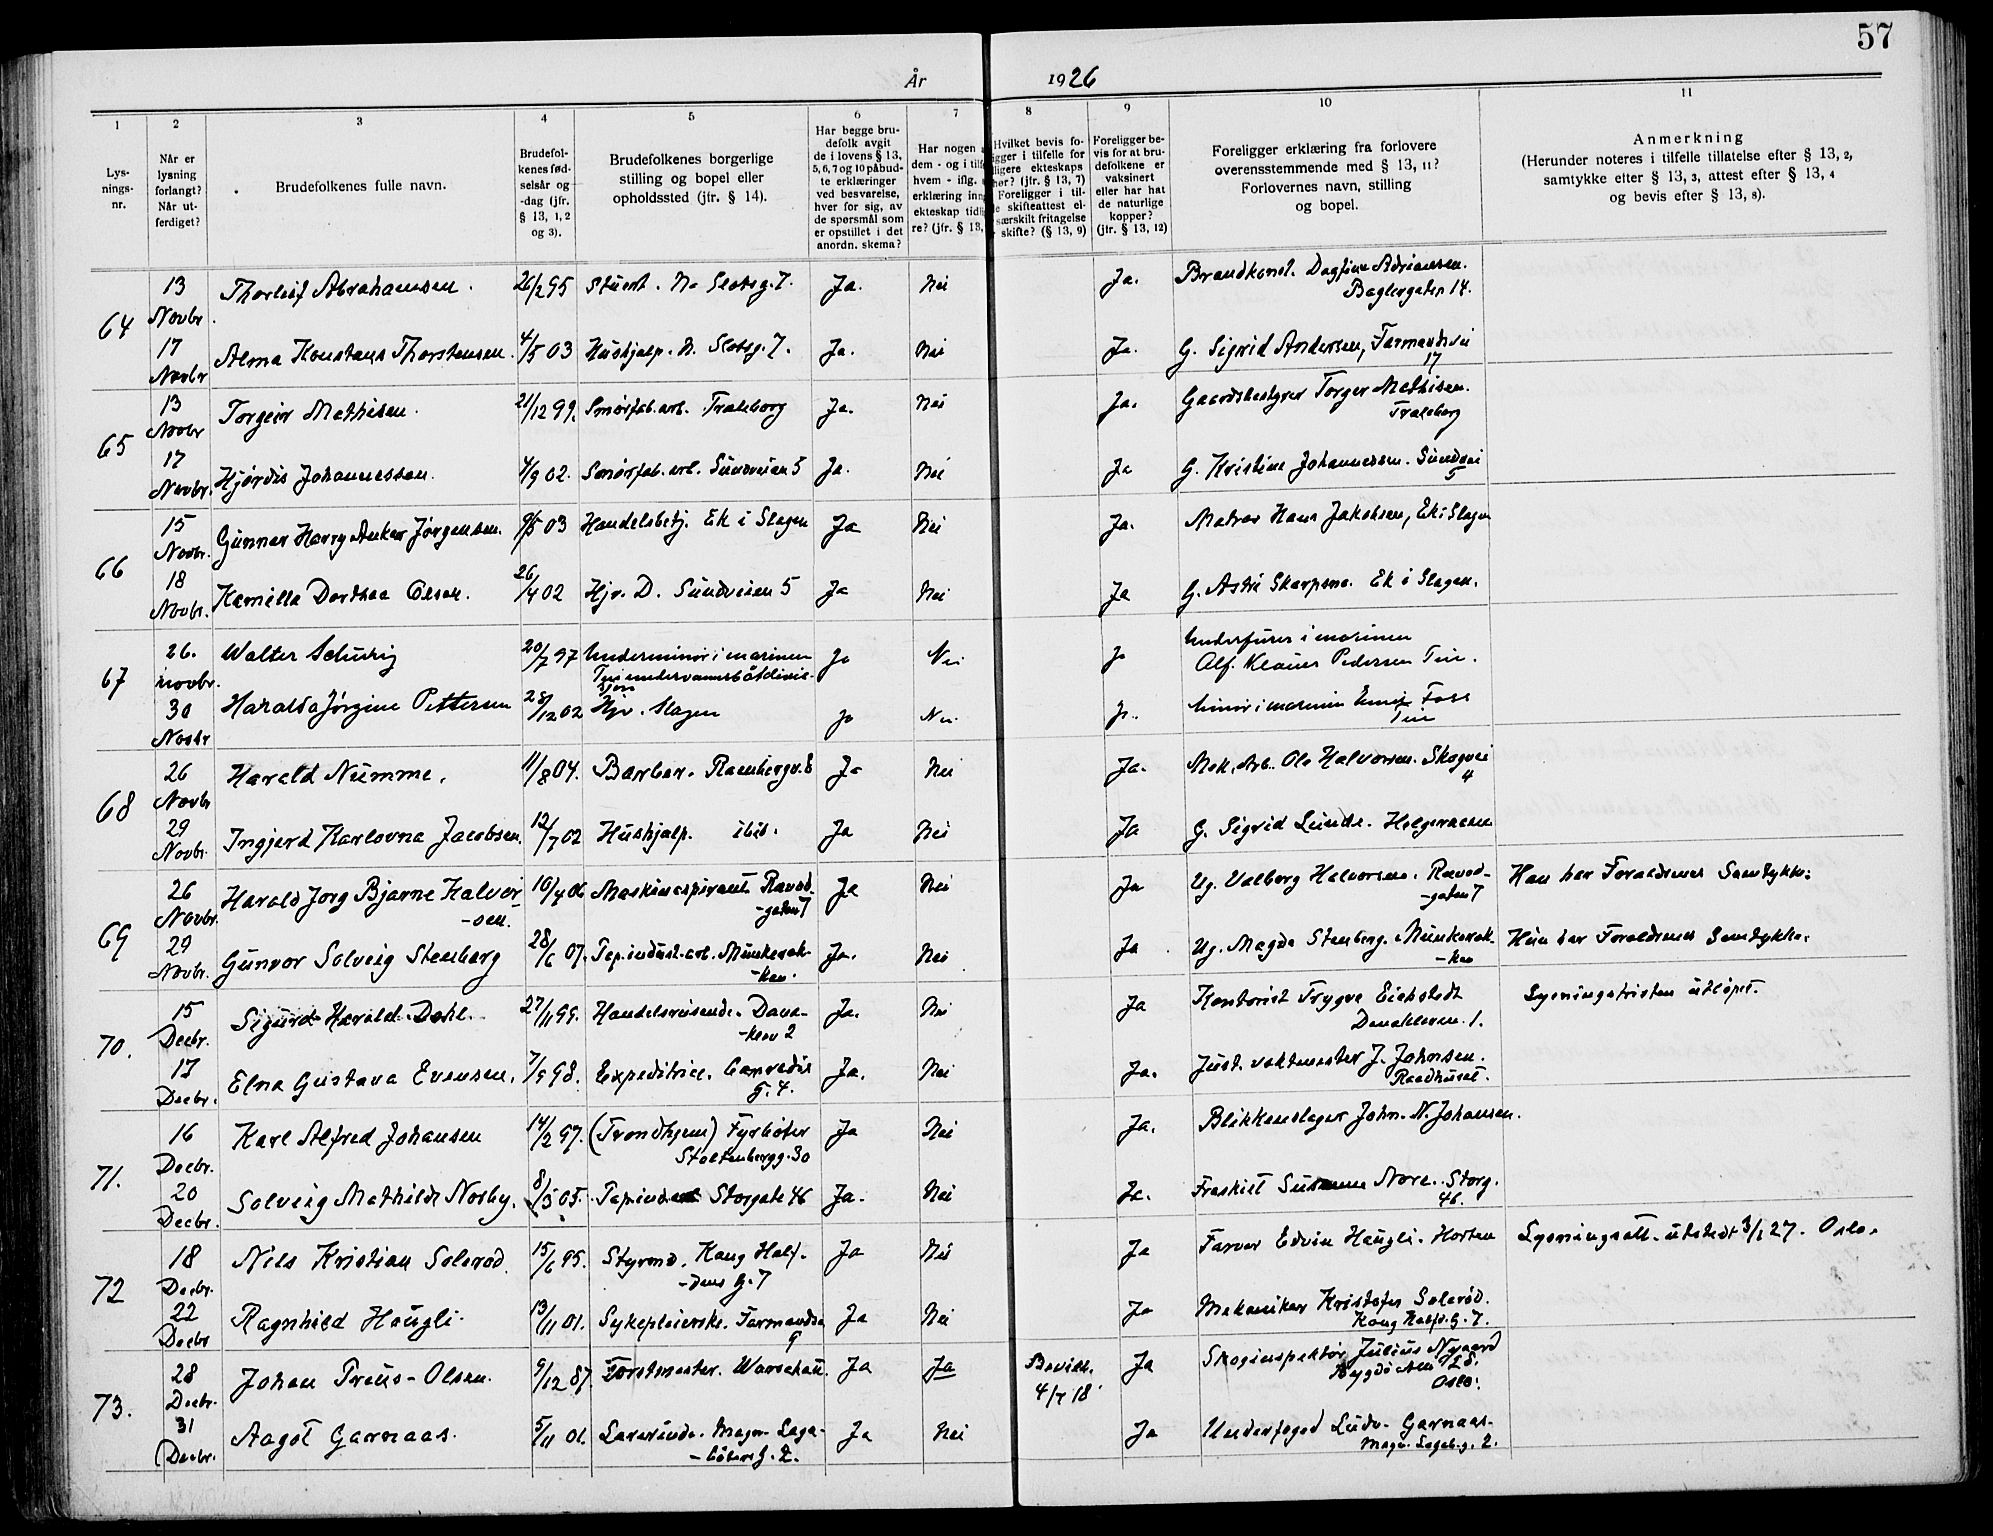 57
År 1926
1 2 3 4 5 6 7 8 9 10 11
Lysningsnr.
Når er lysning forlangt? Når utferdiget?
Brudefolkenes fulle navn.
Brudefolkenes fødselsår og -dag (jfr. § 13, 1, 2 og 3).
Brudefolkenes borgerlige stilling og bopel eller opholdssted (jfr. § 14).
Har begge brudefolk avgit de i lovens § 13, 5, 6, 7 og 10 påbudte erklæringer ved besvarelse, hver for sig, av de spørsmål som er opstillet i det anordn. skema?
Har nogen
dem - og i tilf
hvem - iflg.
erklæring inn
ekteskap tidl
re? (jfr. § 13,
Hvilket bevis fo-
gger i tilfelle for
ligere ekteskaps
hør? (jfr. § 13, 7)
Foreligger i til-
e skifteattest el-
særskilt fritagelse
skifte? (§ 13, 9)
Foreligger bevis for at brudefolkene er vaksinert eller har hat de naturlige kopper? (jfr. § 13, 12)
Foreligger erklæring fra forlovere overensstemmende med § 13, 11? Forlovernes navn, stilling og bopel.
Anmerkning
(Herunder noteres i tilfelle tillatelse efter § 13, 2, samtykke efter § 13, 3, attest efter § 13, 4 og bevis efter § 13, 8).
64 13 Novbr. Thorleif Abrahamsen. 26/2 95 Stuert. N. Slotsg. 7. Ja. Nei Ja. Brandkonst. Dagfinn Adriansen.
Baglergaten 14.
17 Novbr Alma Konstans Thorstensen. 4/5 03 Hushjælp. N. Slotsg. 7. Ja. Nei Ja. G. Sigrid Andersen, Farmandsvei
17
65 13 Novbr Torgeir Mathisen. 21/12 99. Smørfab.arb. Træleborg Ja. Nei Ja. Gaardsbestyrer Torger Mathisen.
Træleborg
17 Novbr. Hjørdis Johannessen. 4/9 02. Smørfab. arb. Sundveien 5 Ja. Nei Ja G. Kristine Johannessen. Sundvei
5
66 15 Novbr. Gunnar Harry Anker Jørgensen. 9/5 03 Handelsbetj. Ek i Slagen Ja Nei Ja. Matros Hans Jakobsen, Ek i Slagen
18 Novbr. Kamilla Dorthea Olsen. 26/4 02 Hjv. D. Sundveien 5 Ja Nei Ja G. Astri Skarpsno. Ek i Slagen.
67 26. novbr. Walter Schurig 20/7 97 Underminør i marinen Ja Nei Ja Underfurer i marinen
Alf. Klaus Pedersen Tør.
30 Novbr Haralda Jørgine Pettersen 28/12 02 Hjv. Slagen Ja Nei. Ja. Minør i marinen Foss
68 26 Novbr Harald Numme. 11/8 04. Barber. Rambergv. 8 Ja Nei Ja. Mek. Arb. Ole Halvorsen. Skogvei
4
29 Novbr. Ingjerd Karlovna Jacobsen. 12/7 02 Hushjælp. ibid. Ja Nei Ja G. Sigrid Lunde. Helgeroaen
69 26 Novbr. Harald Jørg Bjarne Halvor-
-sen. 10/4 06 Maskinaspirant. Rævød-
-gaten 7 Ja Nei Ja Ug. Valborg Halvorsen. Rævød-
-gaten 7 Han har Forældrenes Samtykke.
29 Novbr. Gunvor Solveig Stenberg 28/6 07. Tap.indust.arb. Munkerek-
-ken. Ja. Nei Ja Ug. Magda Stenberg. Munkerek-
-ken Hun har Forældrenes Samtykke.
70. 15 Decbr. Sigurd Harald Dahl. 27/11 99. Handelsreisende. Dana-
-klev 2 Ja. Nei Ja Kontorist Trygve Eichstedt
Danakleven. 1. Lysningsfristen utløpet.
17 Decbr. Elna Gustava Evensen. 7/9 98. Expeditrice. Conradis
G. 4. Ja. Nei Ja. Just. vaktmester J. Johnsen.
Raadhuset.
71. 16 Decbr. Karl Alfred Johansen 14/2 97. (Trondhjem) Fyrbøter
Stoltenbergg. 30 Ja Nei Ja. Blikkenslager John. N. Johansen.
20 Decbr. Solveig Mathilde Norby. 8/5 05. Tapind. Storgate 46 Ja. Nei Ja. Frøskilt Susanne Nore. Storg.
46.
72 18 Decbr. Nils Kristian Solerød. 15/6 95. Styrmd. Kong Half-
-dans G. 7 Ja Nei Ja Farver Edvin Haugli. Horten Lysningsatt. utstedt 3/1 27. Oslo.
22 Decbr Ragnhild Haugli. 13/11 01. Sykepleierske. Farmandsv.
9 Ja Nei Ja Mekaniker Kristofer Solerød.
Kong Halfd. G. 7.
73. 28 Decbr. Johan Preus-Olsen. 9/12 87. Forstmester. Warschau. Ja Ja Bevill.
4/7 18. Ja Skoginspektør Julius Nygaard
Bygdø Alle 128.
Oslo.
31 Decbr. Aagot Garnaas. 5/11 01. Lærerinde. Magn. Laga-
-bøters G. 2. Ja Nei Ja Underfoged Ludv. Garnaas.
Magn. Lagab. g. 2.